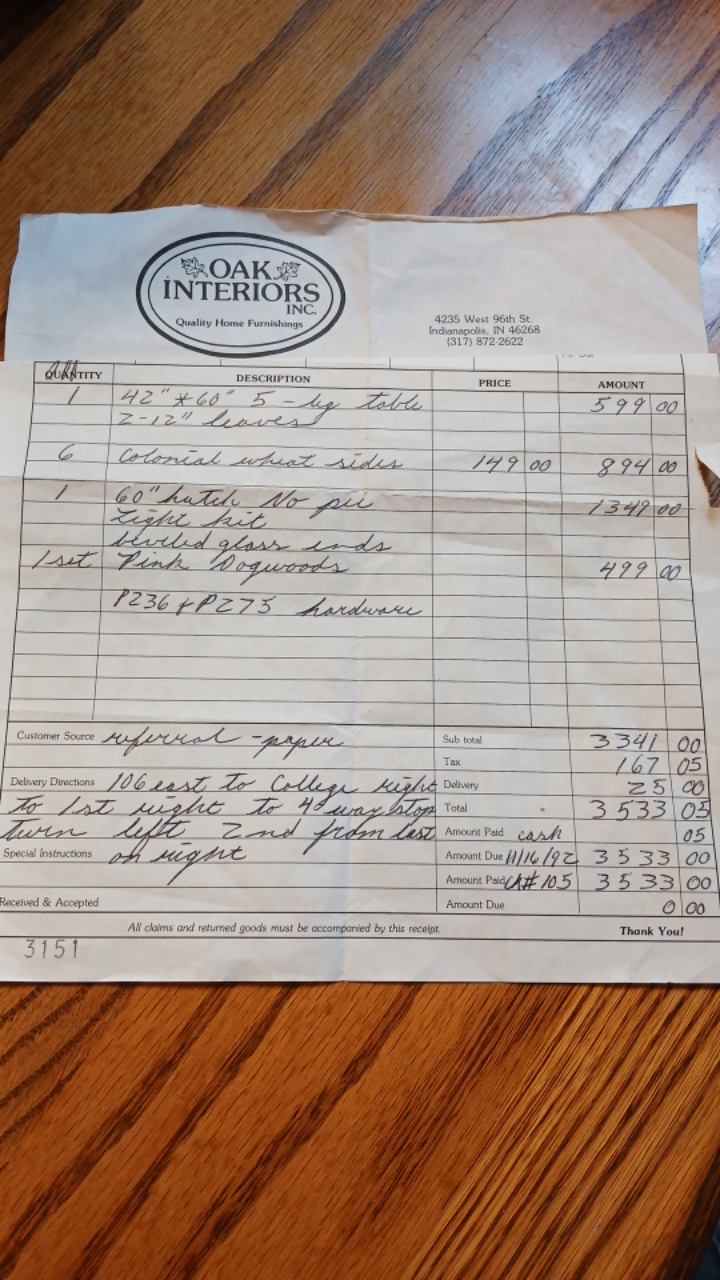 OAK
INTERIORS
INC.
Quality Home Furnishings
4235 West 96th St.
Indianapolis, IN 46268
(317) 872-2622
QUANTITY DESCRIPTION PRICE AMOUNT
1 42" * 60" 5 - leg table 599 00
2-12" leaves
6 Colonial wheat sides 149 00 894 00
1 60" hutch No pie 1349 00
Light kit
beveled glass ends
1 set Pink Dogwoods 499 00
P236 & P273 hardware
Customer Source referral - paper Sub total 3341 00
Tax 167 05
Delivery Directions 106 east to College right Delivery 25 00
to 1st right to 4 way stop Total 3533 05
turn left 2nd from last Amount Paid cash 05
Special Instructions on right Amount Due 11/16/92 3533 00
Amount Paid CK# 105 3533 00
Received & Accepted Amount Due 0 00
All claims and returned goods must be accompanied by this receipt. Thank You!
3151